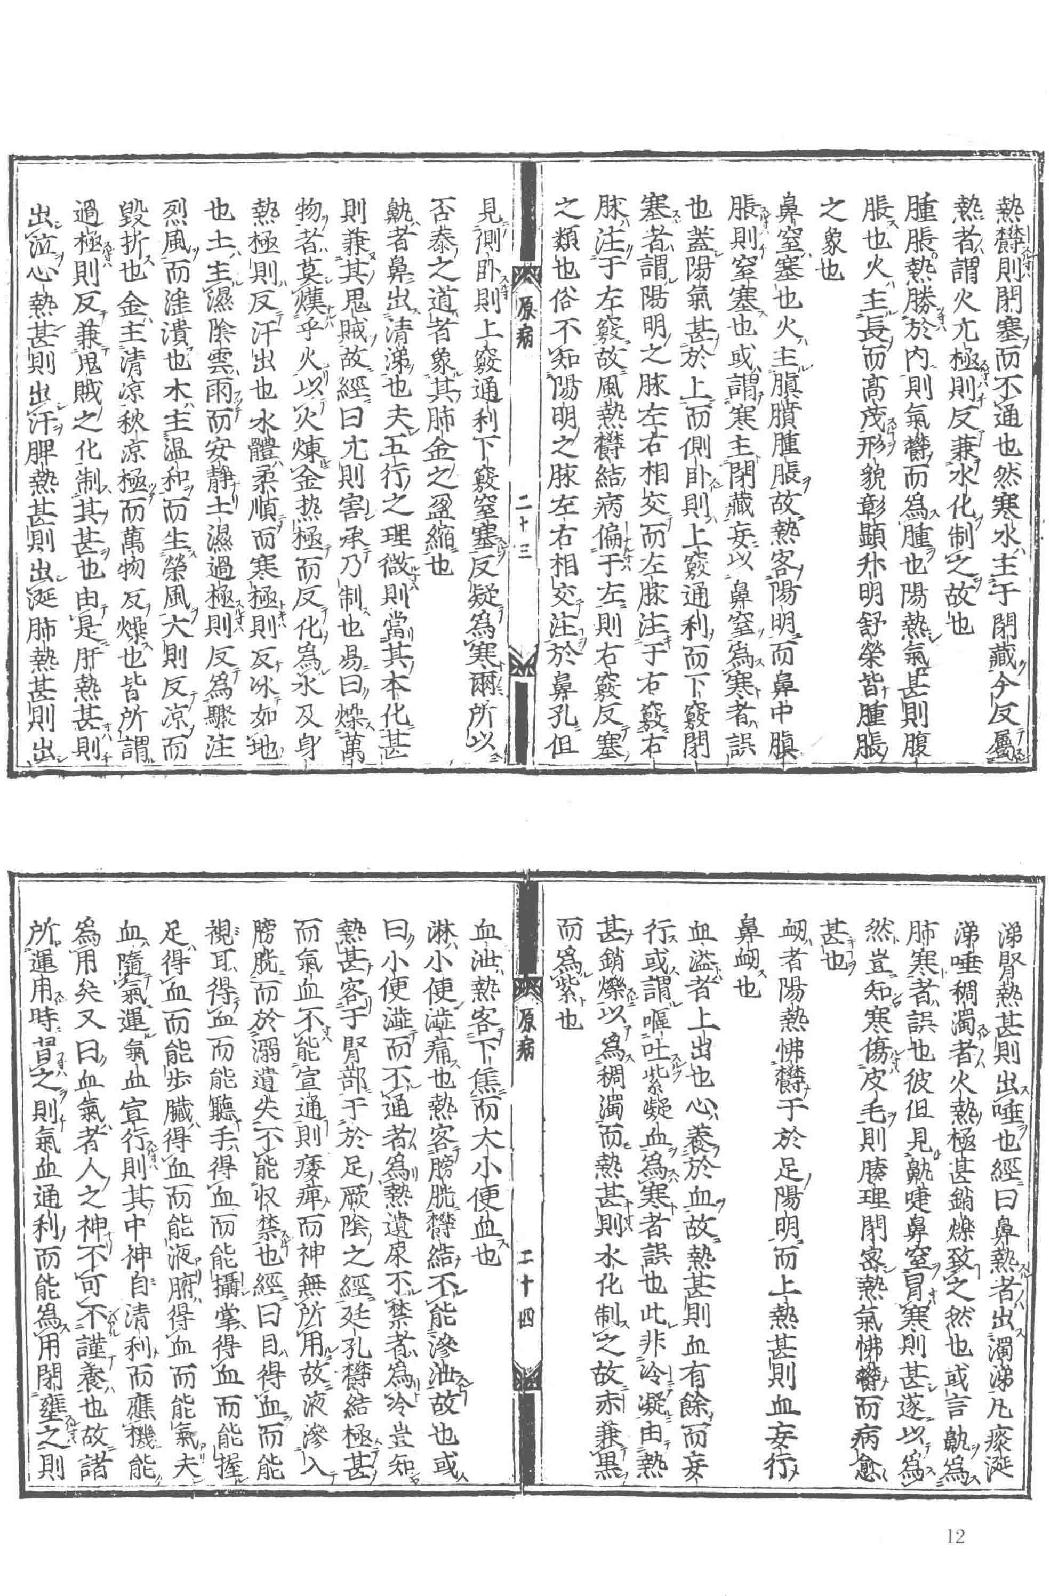 熱欝則閉塞而不通也然寒水主于閉藏今反屬
熱者謂火亢極則反兼水化制之故也
腫脹熱勝於內則氣欝而為腫也陽熱氣甚則腹
脹也火主長而高茂形貌彰顯升明舒榮皆腫脹
之象也
鼻窒窒塞也火主䐜膹腫脹故熱客陽明而鼻中䐜
脹則窒塞也或謂寒主閉藏妄以鼻窒為寒者誤
也蓋陽氣甚於上而側臥則上竅通利而下竅閉
塞者謂陽明之脉左右相交而左脉注于右竅右
脉注于左竅故風熱欝結病偏于左則右竅反塞
之類也俗不知陽明之脉左右相交注於鼻孔但
原病
二十三
見側臥則上竅通利下竅窒塞反疑為寒爾所以
否泰之道者象其肺金之盈縮也
鼽者鼻出清涕也夫五行之理微則當其本化甚
則兼其鬼賊故經曰亢則害承乃制也易曰燥萬
物者莫熯乎火以火煉金热極而反化為水及身
熱極則反汗出也水體柔順而寒極則反冰如地
也土主濕陰雲雨而安靜土濕過極則反為驟注
烈風而淫潰也木主温和而生榮風大則反凉而
毀折也金主清凉秋凉極而萬物反燥也皆所謂
過極則反兼鬼賊之化制其甚也由是肝熱甚則
出泣心熱甚則出汗脾熱甚則出涎肺熱甚則出
涕腎熱甚則出唾也經曰鼻熱者出濁涕凡痰涎
涕唾稠濁者火熱極甚銷爍致之然也或言鼽為
肺寒者誤也彼但見鼽嚏鼻窒冒寒則甚遂以為
然豈知寒傷皮毛則腠理閉密熱氣怫欝而病愈
甚也
衂者陽熱怫欝于於足陽明而上熱甚則血妄行
鼻衂也
血溢者上出也心養於血故熱甚則血有餘而妄
行或謂嘔吐紫凝血為寒者誤也此非冷凝由熱
甚銷爍以為稠濁而熱甚則水化制之故赤兼黑
而為紫也
原病
二十四
血泄熱客下焦而大小便血也
淋小便澁痛也熱客膀胱欝結不能滲泄故也或
曰小便澁而不通者為熱遺尿不禁者為冷豈知
熱甚客于腎部于於足厥陰之經廷孔欝結極甚
而氣血不能宣通則痿痺而神無所用故液滲入
膀胱而於溺遺失不能収禁也經曰目得血而能
視耳得血而能聽手得血而能攝掌得血而能握
足得血而能步臟得血而能液腑得血而能氣夫
血隨氣運氣血宣行則其中神自清利而應機能
為用矣又曰血氣者人之神不可不謹養也故諸
所運用時習之則氣血通利而能為用閉壅之則
12